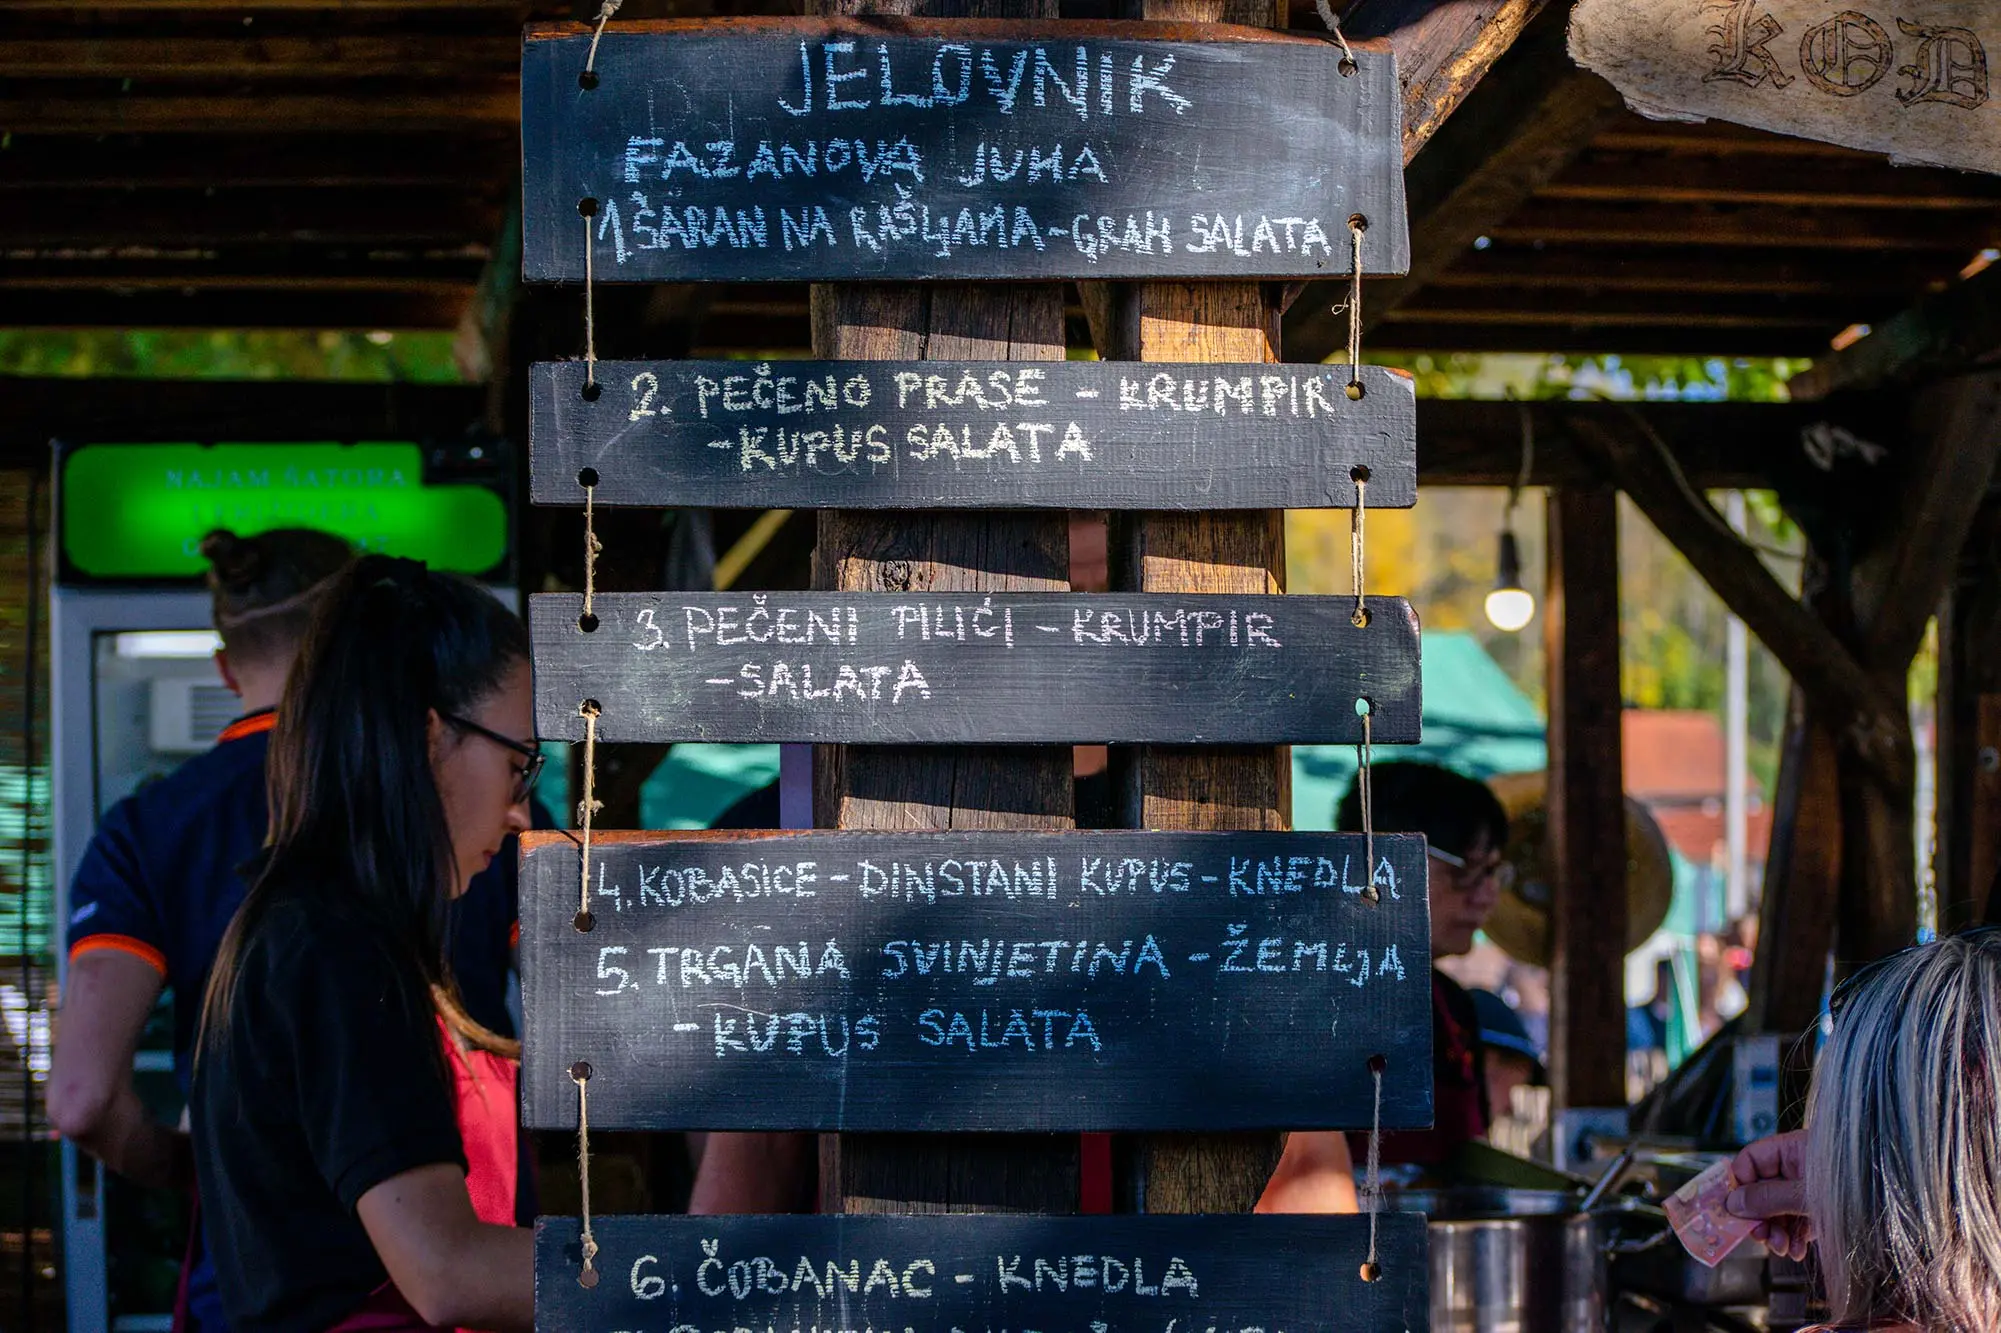 KOD
JELOVNIK
FAZANOVA JUHA
1. ŠARAN NA RAŠLJAMA - GRAH SALATA
2. PEČENO PRASE - KRUMPIR
- KUPUS SALATA
3. PEČENI PILIĆI - KRUMPIR
- SALATA
4. KOBASICE - DINSTANI KUPUS - KNEDLA
5. TRGANA SVINJETINA - ŽEMLJA
- KUPUS SALATA
6. ČOBANAC - KNEDLA
NAJAM ŠATORA